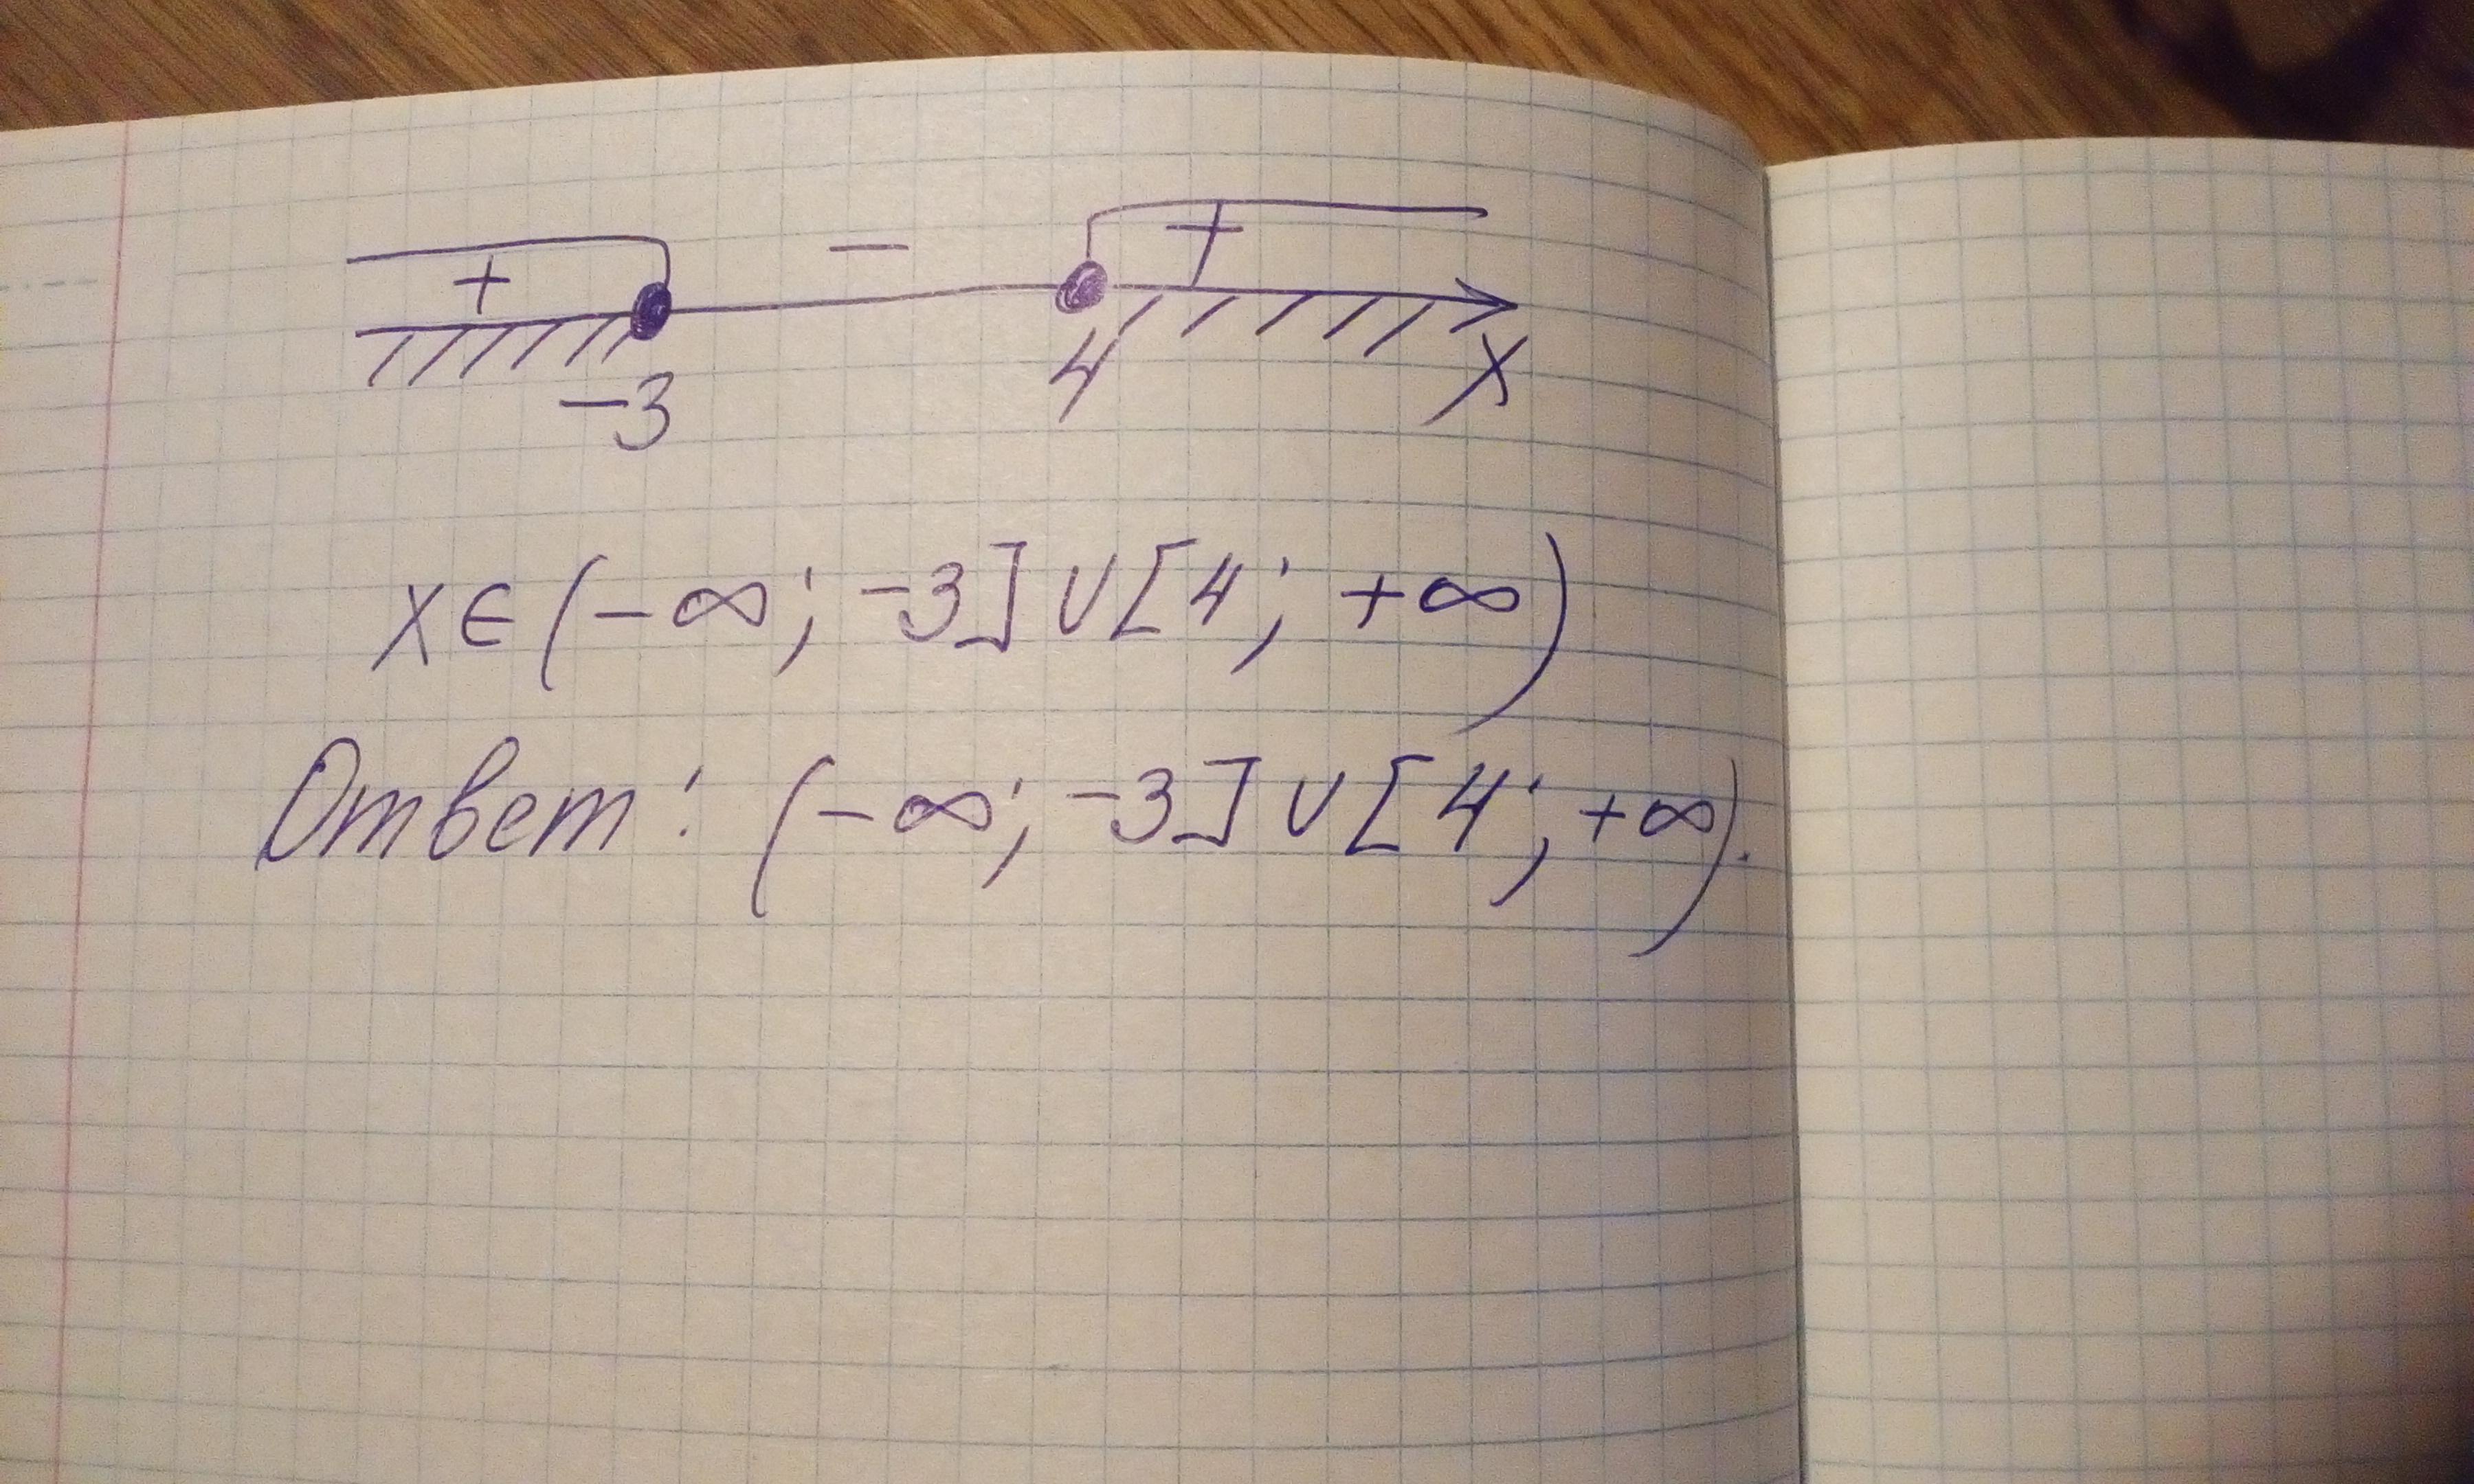 + − +
−3 4 x
x∈(−∞; −3]∪[4; +∞)
Ответ: (−∞; −3]∪[4; +∞).